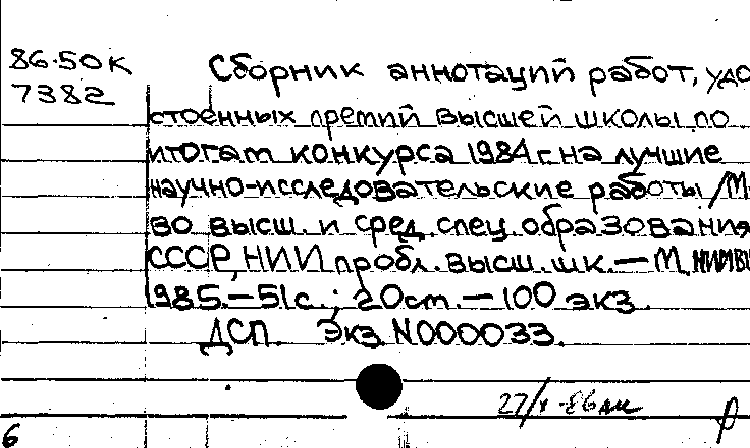 86.50К Сборник аннотаций работ, удо
7382
стоенных премий высшей школы по
итогам конкурса 1984 г. на лучшие
научно-исследовательские работы / М
во высш. и сред. спец. образования
СССР, НИИ пробл. высш. шк. — М. НИИВШ
1985. — 51 с.; 20 см. — 100 экз.
ДСП. Экз. N000033.
6